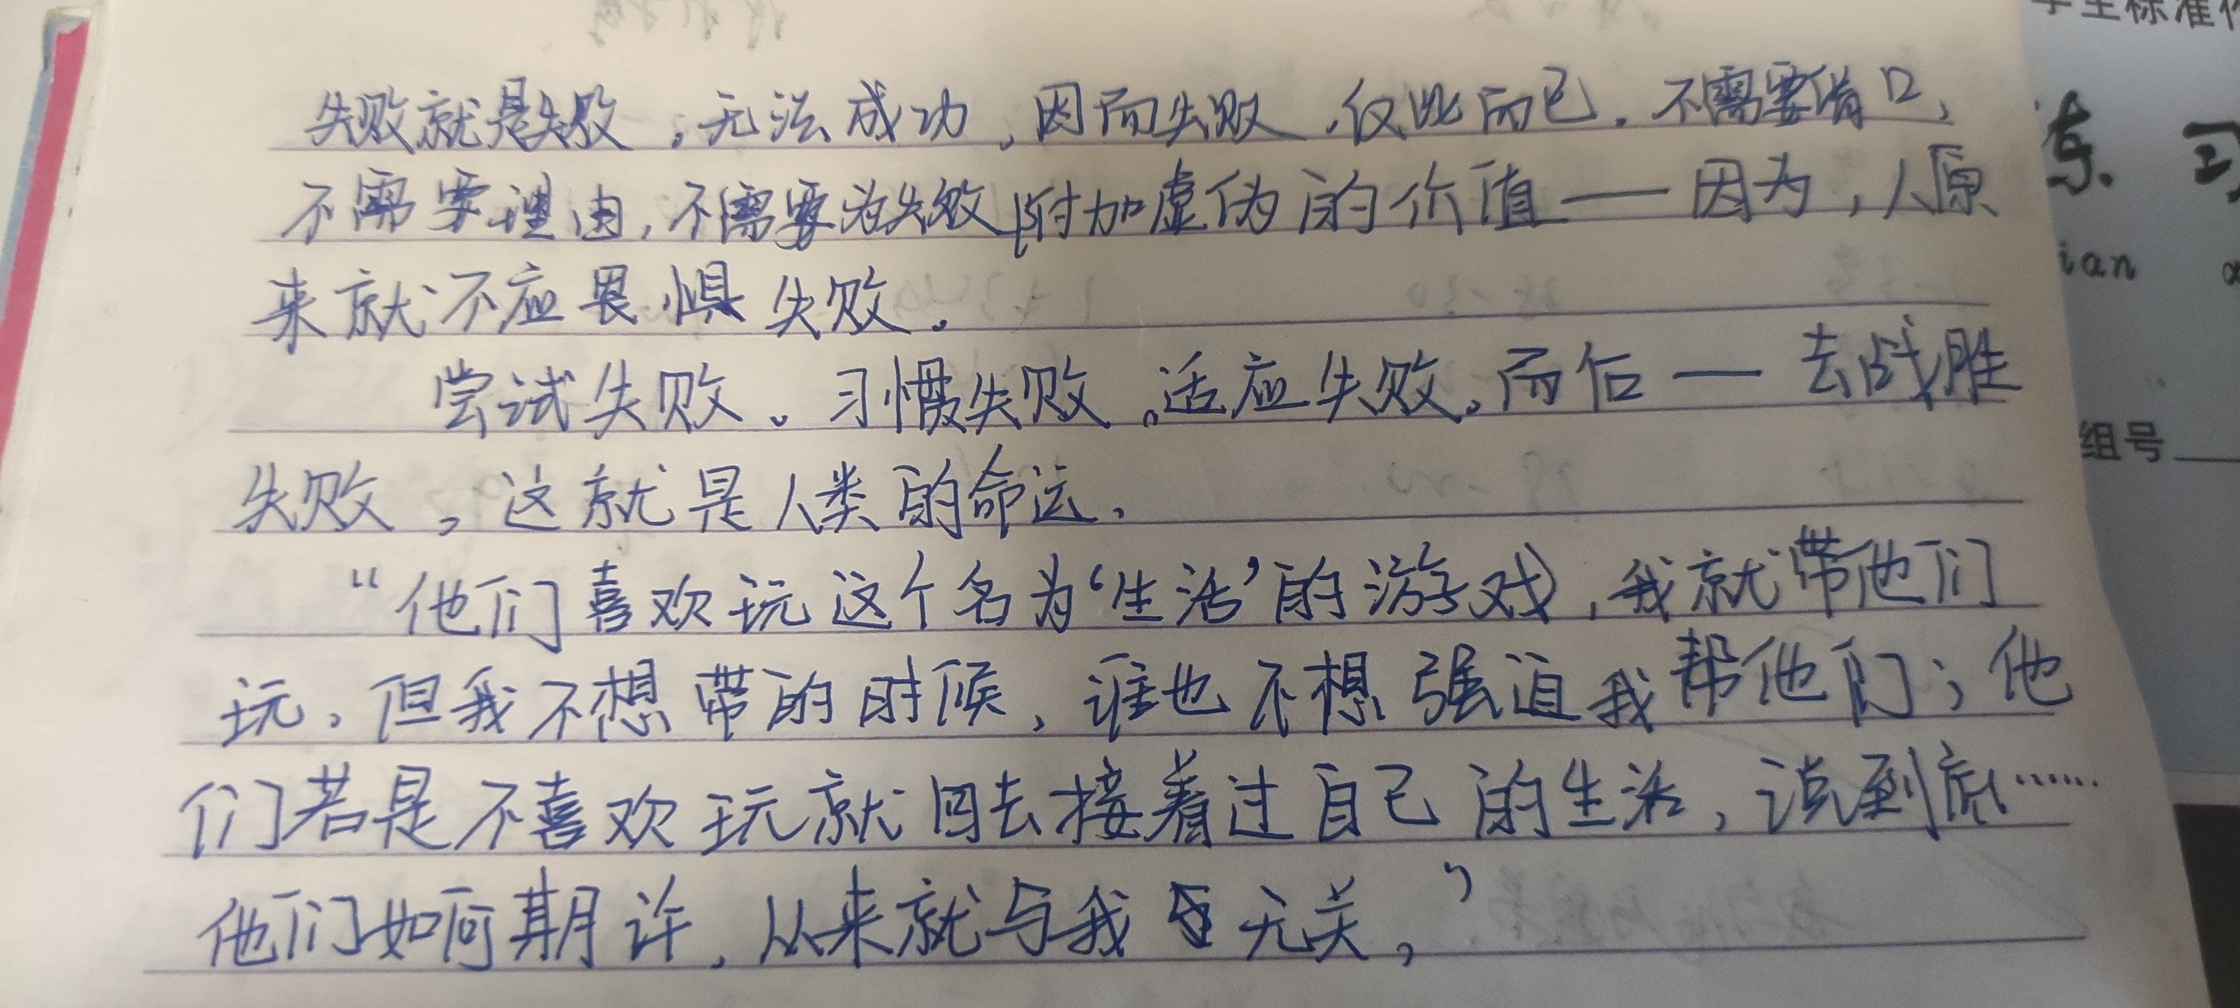 失败就是失败，无法成功，因而失败，仅此而已。不需要借口，
不需要理由，不需要为失败附加虚伪的价值——因为，人原
来就不应畏惧失败。
尝试失败。习惯失败。适应失败。而后——去战胜
失败，这就是人类的命运。
“他们喜欢玩这个名为‘生活’的游戏，我就带他们
玩，但我不想带的时候，谁也不想强迫我帮他们；他
们若是不喜欢玩就回去接着过自己的生活，说到底……
他们如何期许，从来就与我无关。”
练 习
ian
组号